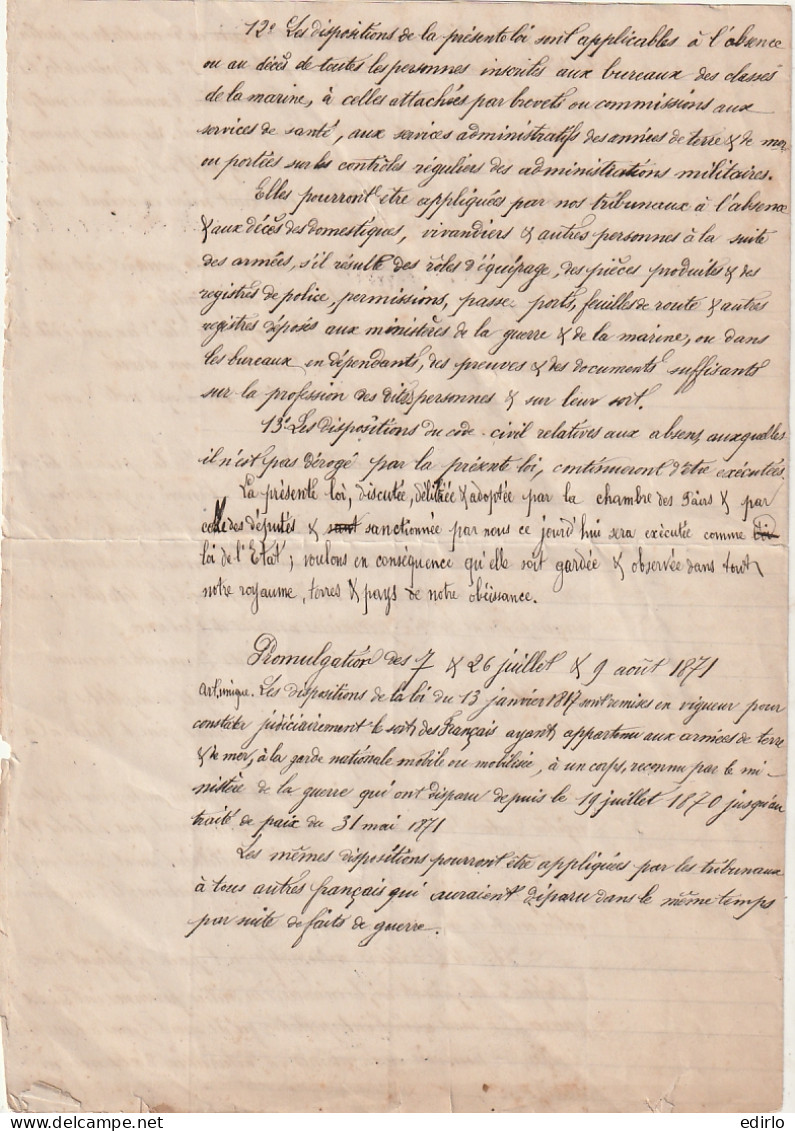 12º Les dispositions de la présente loi sont applicables à l'absence
ou au décès de toutes les personnes inscrites aux bureaux des classes
de la marine, à celles attachées par brevets ou commissions aux
services de santé, aux services administratifs des armées de terre & de mer
ou portées sur les contrôles réguliers des administrations militaires.
Elles pourront être appliquées par nos tribunaux à l'absence
& aux décès des domestiques, vivandiers & autres personnes à la suite
des armées, s'il résulte des rôles d'équipage, des pièces produites & des
registres de police, permissions, passe-ports, feuilles de route & autres
registres déposés aux ministères de la guerre & de la marine, ou dans
les bureaux en dépendants, des preuves & des documents suffisants
sur la profession des dites personnes & sur leur sort.
13º Les dispositions du code civil relatives aux absens auxquelles
il n'est pas dérogé par la présente loi, continueront d'être exécutées
La présente loi, discutée, délibérée & adoptée par la chambre des Pairs & par
celle des députés & sant sanctionnée par nous ce jourd'hui sera exécutée comme loi
loi de l'Etat; voulons en conséquence qu'elle soit gardée & observée dans tout
notre royaume, terres & pays de notre obéissance.
Promulgation des 7 & 26 juillet & 9 août 1871
Art. unique. Les dispositions de la loi du 13 janvier 1817 sont remises en vigueur pour
constater judiciairement le sort des Français ayant appartenu aux armées de terre
& de mer, à la garde nationale mobile ou mobilisée, à un corps, reconnu par le mi-
nistère de la guerre qui ont disparu depuis le 19 juillet 1870 jusqu'au
traité de paix du 31 mai 1871
Les mêmes dispositions pourront être appliquées par les tribunaux
à tous autres français qui auraient disparu dans le même temps
par suite de faits de guerre.
edirlo